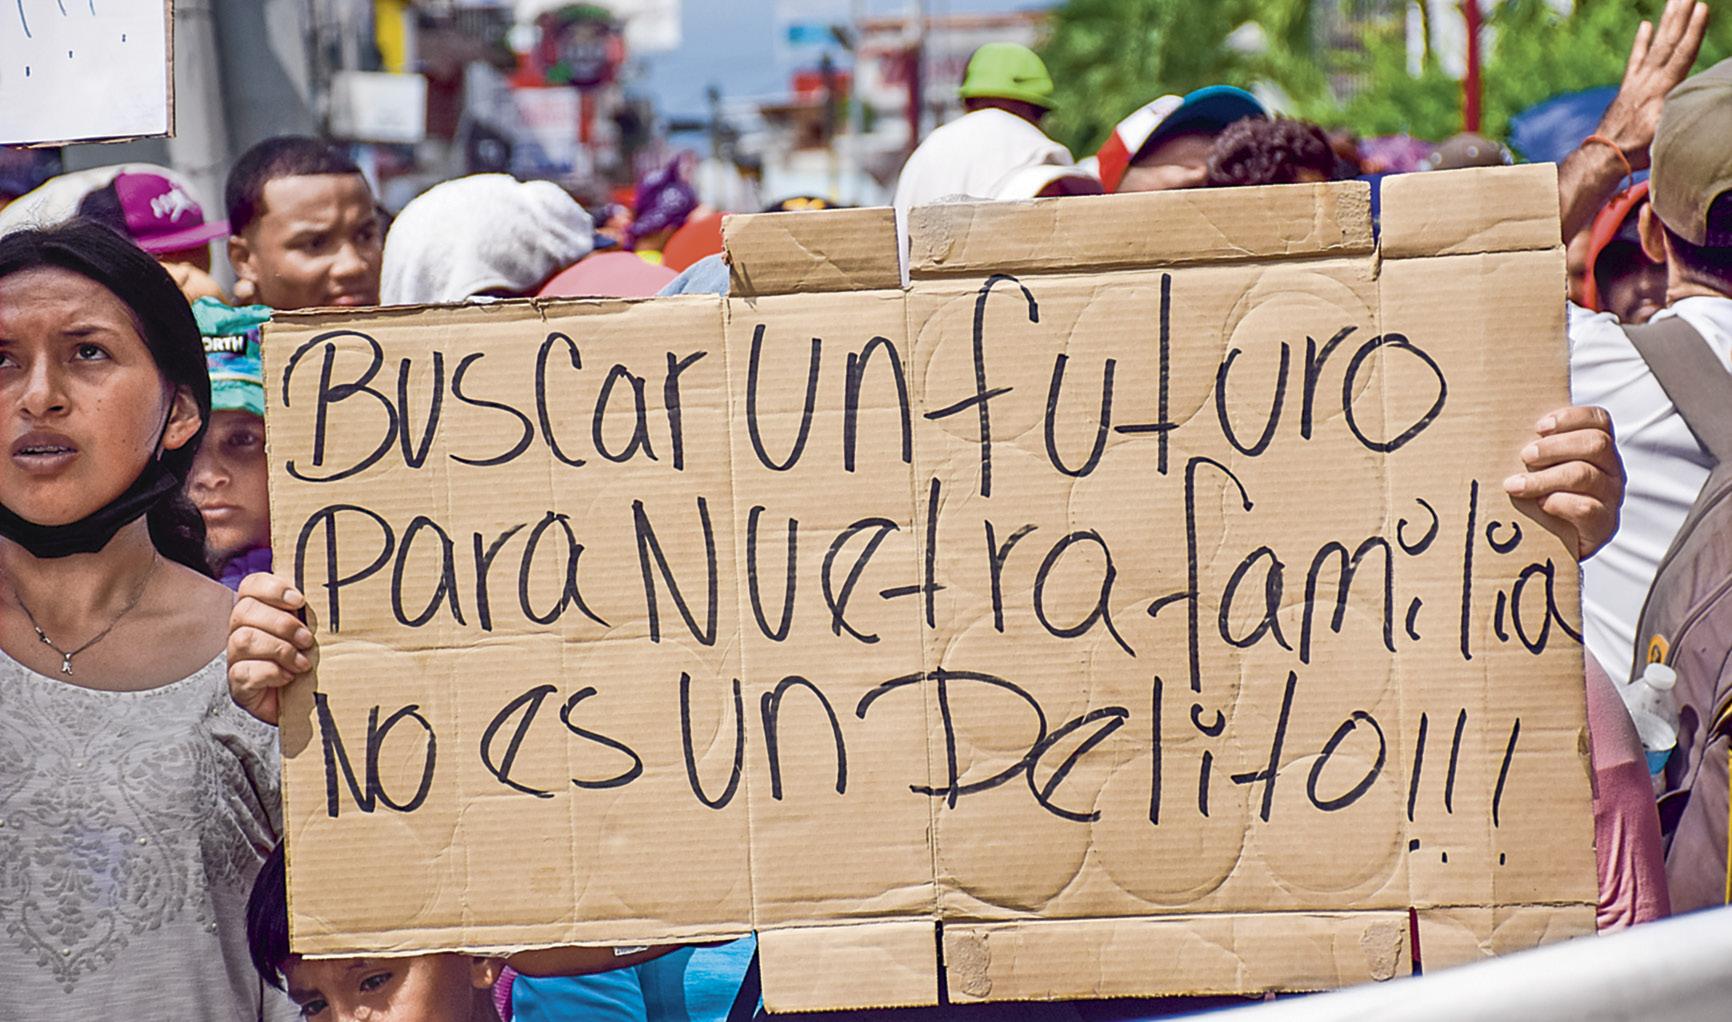 ORTH
Buscar un futuro
Para Nuetra familia
No es un Delito!!!